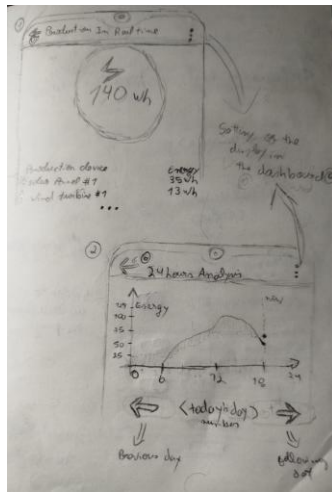 1
Production In Real time
140 wh
Production device Energy
Solar Panel #1 35 wh
wind turbine #1 13 wh
...
Setting of the
display in
the dashboard
2
24 hours Analysis
Energy
now
100
50
25
0 6 12 18 24
(today's day)
number
Previous day
following
day